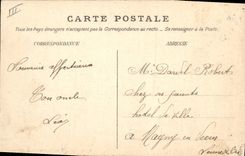 III
CARTE POSTALE
Tous les pays étrangers n'acceptent pas la Correspondance au recto. — Se renseigner à la Poste.
CORRESPONDANCE
ADRESSE
Souvenir affectueux
Ton oncle
Léo
M. Daniel Roberts
chez ses parents
hotel de ville
à Magny en Vexin